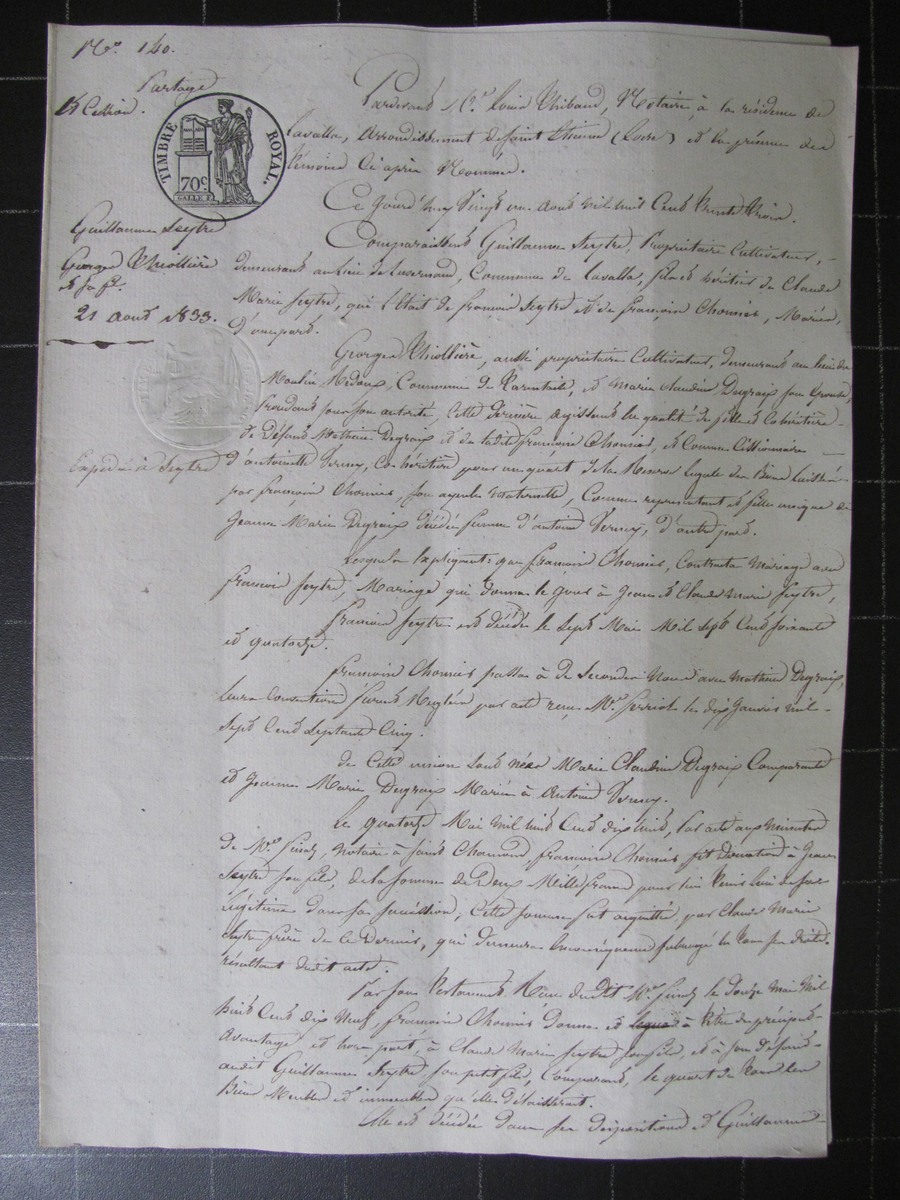 No. 140.
Partage
et Cession.
TIMBRE ROYAL.
70c
Guillaume Seytre
Georges Thiollière
et sa fe.
21 août 1833.
Expédié à Seytre
Pardevant Me. Louis Thibaud, Notaire, à la résidence de
Lavalla, arrondissement de Saint Etienne (Loire) et en présence des
témoins ci après nommés.
Ce jourd'huy Vingt un août mil huit cent trente trois.
Comparaissent Guillaume Seytre, Propriétaire Cultivateur,
demeurant au lieu de Luzernod, Commune de Lavalla, fils et héritier de Claude
Marie Seytre, qui l'était de françois Seytre et de françoise Chomier, Mariés,
d'une part.
Georges Thiollière, aussi propriétaire Cultivateur, demeurant au lieu du
Moulin Commune de Tarentaise, et Marie Claudine Degraix son épouse,
procédant sous son autorité, Cette dernière agissant en qualité de fille et Cohéritière
de Défunt Mathieu Degraix et de ladite françoise Chomier, et Comme Cessionnaire
d'antoinette Cohéritière pour un quart de la Réserve légale des Biens laissés
par françoise Chomier, son ayeule Maternelle, Comme représentant et fille unique de
Jeanne Marie Degraix décédée femme d'antoine d'autre part.
Lesquels Expliquent: que françoise Chomier, Contracta Mariage avec
françois Seytre, Mariage qui donna le jour à Jean et Claude Marie Seytre,
françois Seytre est décédé le Sept Mai Mil Sept Cent Soixante
et quatorze.
françoise Chomier passa à de Secondes Noces avec Mathieu Degraix,
leurs Conventions furent Réglées par acte reçu Me. le dix Janvier mil
Sept Cent Septante Cinq.
de Cette union sont nées Marie Claudine Degraix Comparante
et Jeanne Marie Degraix Mariée à Antoine
Le quatorze Mai Mil huit Cent dix huit, Par acte aux Minutes
de Me. Finaz, Notaire à Saint Chamond, françoise Chomier fit Donation à Jean
Seytre son fils, de la somme de Deux Mille francs pour lui tenir lieu de sa
légitime dans sa succession, Cette somme fut acquittée par Claude Marie
Seytre frère de Ce Dernier, qui demeura Conséquemment subrogé en tous ses droits
résultant dudit acte.
Par son Testament Reçu dudit Me. Finaz le Douze Mai Mil
huit Cent dix Neuf, françoise Chomier donna et légua à titre de préciput
avantage et hors part, à Claude Marie Seytre son fils, et à son défaut
audit Guillaume Seytre son petit fils, Comparant, le quart de tous les
Biens Meubles et immeubles qu'elle délaisserait.
Elle est décédée dans ses dispositions et Guillaume